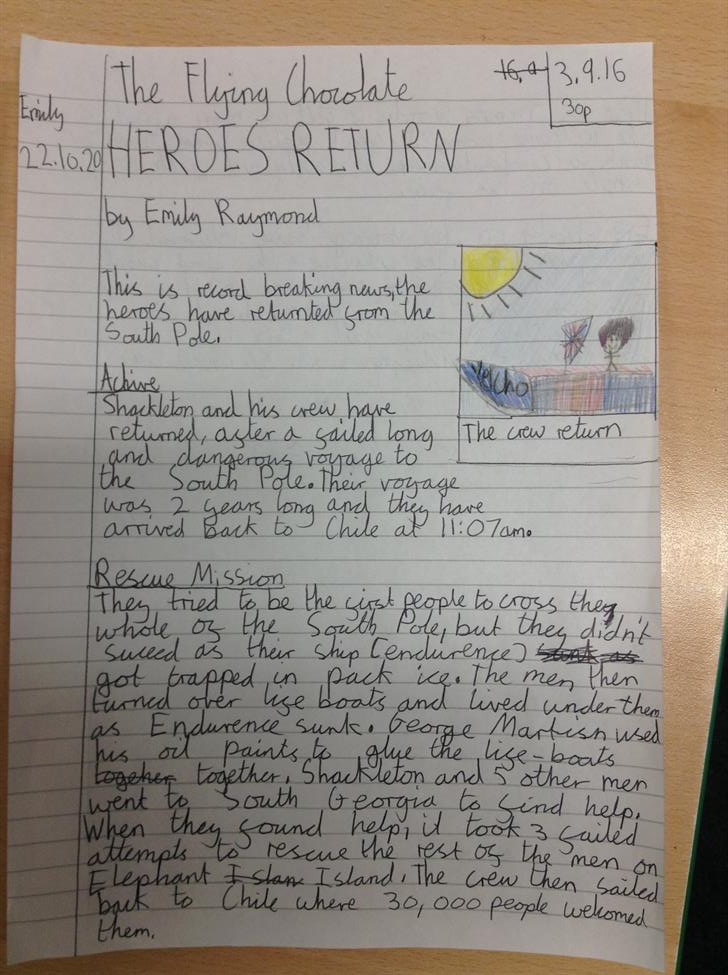 The Flying Chocolate
16,9
3.9.16
30p
Emily
22.10.20
HEROES RETURN
by Emily Raymond
This is record breaking news, the
heroes have returnted from the
South Pole.
Velcho
The crew return
Achive
Shackleton and his crew have
returned, after a failed long
and dangerous voyage to
the South Pole. Their voyage
was 2 years long and they have
arrived back to Chile at 11:07am.
Rescue Mission
They tried to be the first people to cross they
whole of the South Pole, but they didn't
suceed as their ship (endurence) sunk as
got trapped in pack ice. The men then
turned over life boats and lived under them
as Endurence sunk. George Martisn used
his oil paints to glue the life-boats
togeher together. Shackleton and 5 other men
went to South Georgia to find help.
When they found help, it took 3 failed
attempts to rescue the rest of the men on
Elephant Islan Island. The crew then sailed
back to Chile where 30,000 people welcomed
them.